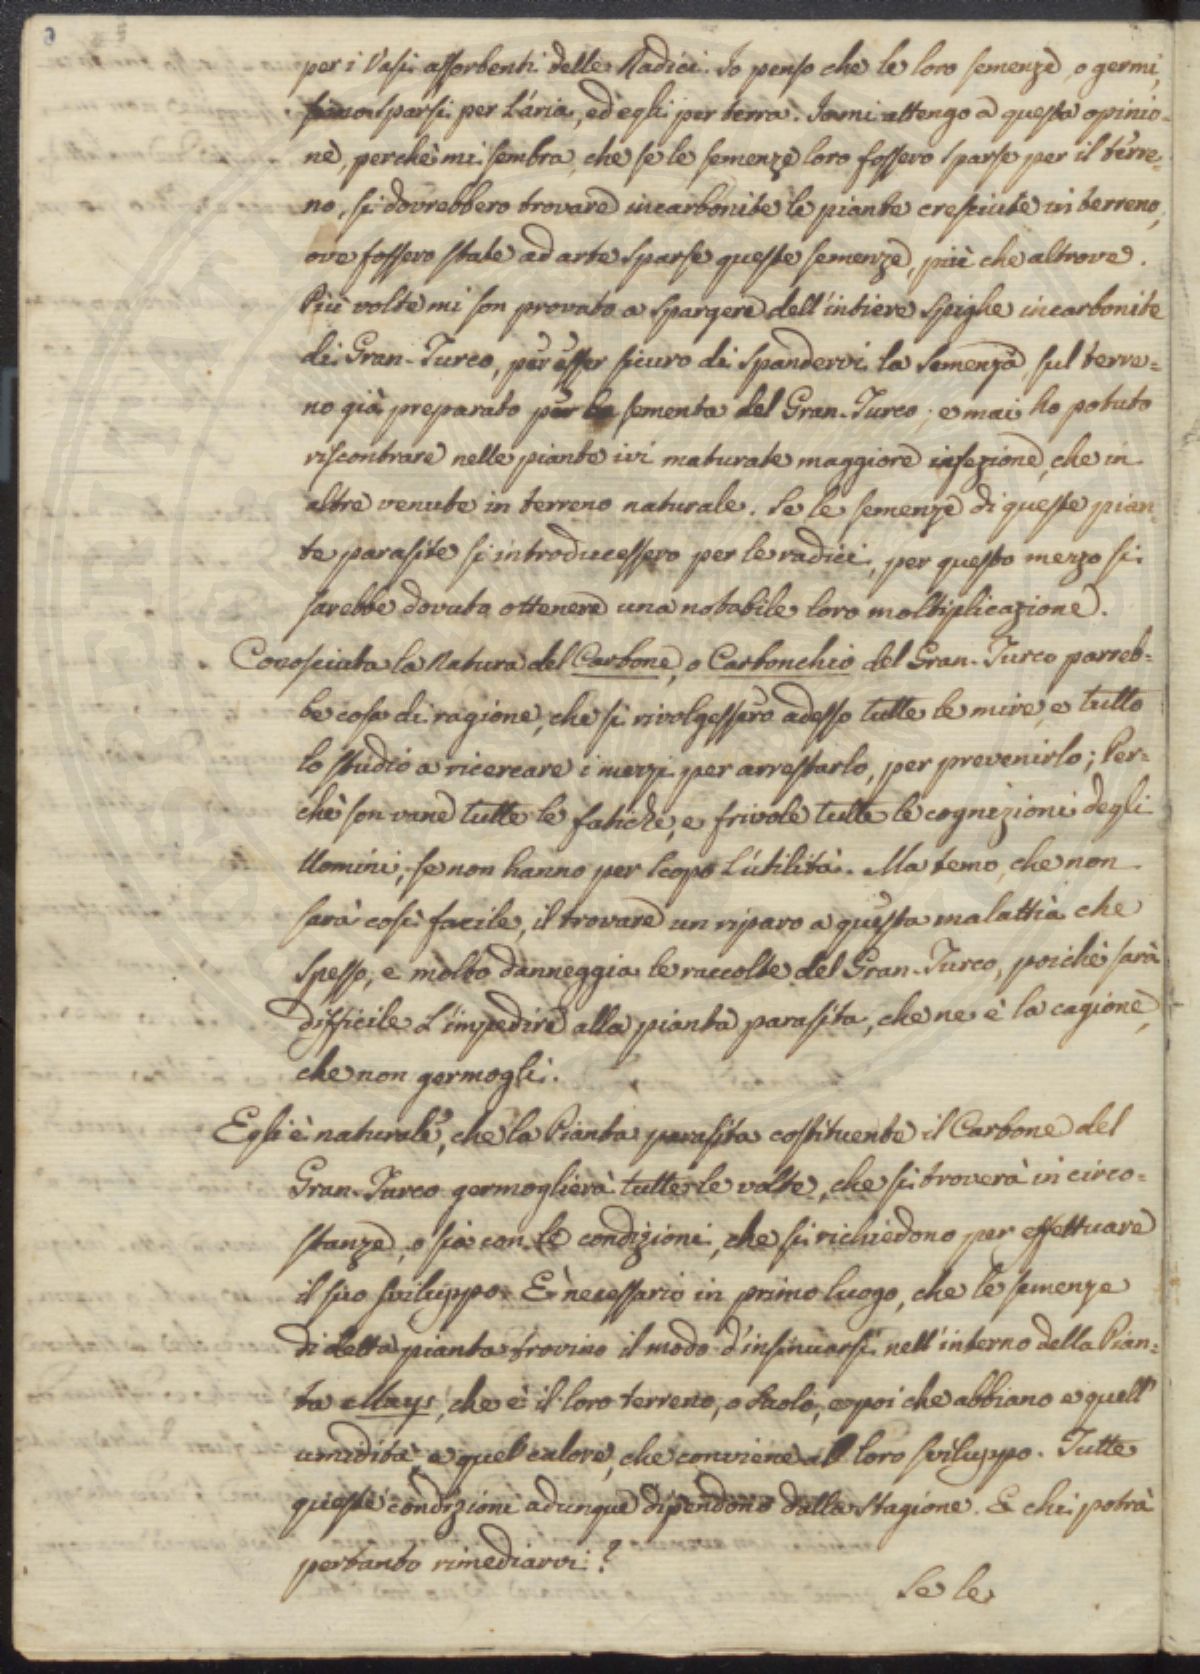 per i Vasi assorbenti delle Radici. Io penso che le loro semenze, o germi,
sieno sparsi per l'aria, ed egli per terra. Io mi attengo a questa opinio-
ne, perchè mi sembra, che se le semenze loro fossero sparse per il terre-
no, si dovrebbero trovare incarbonite le piante cresciute in terreno,
ove fossero state ad arte sparse queste semenze, più che altrove.
Più volte mi son provato a spargere dell'intiere spighe incarbonite
di Gran-Turco, per esser sicuro di spandervi la semenza, sul terre=
no già preparato per la sementa del Gran-Turco; e mai ho potuto
riscontrare nelle piante ivi maturate maggiore infezione, che in
altre venute in terreno naturale. Se le semenze di queste pian-
te parasite si introducessero per le radici, per questo mezzo si
sarebbe dovuta ottenere una notabile loro moltiplicazione.
Conosciuta la Natura del Carbone, o Carbonchio del Gran-Turco parreb=
be cosa di ragione, che si rivolgessero adesso tutte le mire, e tutto
lo studio a ricercare i mezzi per arrestarlo, per prevenirlo; Per=
chè son vane tutte le fatiche, e frivole tutte le cognizioni degli
Uomini, se non hanno per scopo l'utilità. Ma temo, che non
sarà così facile, il trovare un riparo a questa malattia che
spesso, e molto danneggia le raccolte del Gran-Turco, poichè sarà
difficile l'impedire alla pianta parasita, che ne è la cagione,
che non germogli.
Egli è naturale, che la Pianta parasita costituente il Carbone del
Gran-Turco germoglierà tutte le volte, che si troverà in circo=
stanze, o sia con le condizioni, che si richiedono per effettuare
il suo sviluppo. È necessario in primo luogo, che le semenze
di detta pianta trovino il modo d'insinuarsi nell'interno della Pian=
ta Mays, che è il loro terreno, o suolo, e poi che abbiano e quell'
umidità e quel calore, che conviene al loro sviluppo. Tutte
queste condizioni adunque dipendono dalla stagione. E chi potrà
pertanto rimediarvi?
Se le